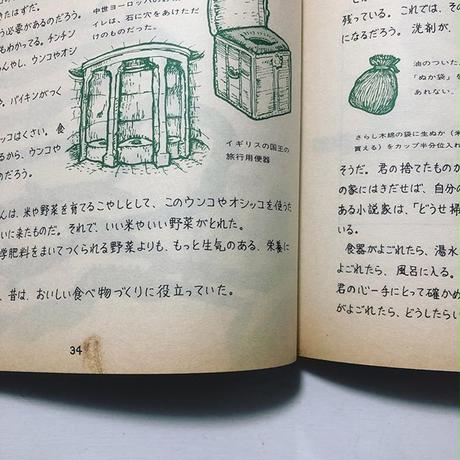 たはずだ。
う必要があるのだろう。
もわかってる。チンチン
んやし、ウンコやオシ
や、バイキンがつく
ッコはくさい。食
るから、ウンコや
のだろう。
イレは、石に穴をあけただ
けのものだった。
イギリスの国王の
旅行用便器
んは、米や野菜を育てるこやしとして、このウンコやオシッコを使うた
いに来たものだ。それで、いい米やいい野菜がとれた。
学肥料をまいてつくられる野菜よりも、もっと生気のある、栄養に
、昔は、おいしい食べ物づくりに役立っていた。
34
残っている。これでは、その
になるだろう。洗剤が、
油のついた
「ぬか袋」を
あれない。
さらし木綿の袋に生ぬか（米
買える）をカップ半分位入れ
そうだ。君の捨てたものか
の家にはきだせば、自分の
ある小説家は、「どうせ掃
いる。
食器がよごれたら、湯水
よごれたら、風呂に入る。
君の心－手にとって確かめ
がよごれたら、どうしたらい